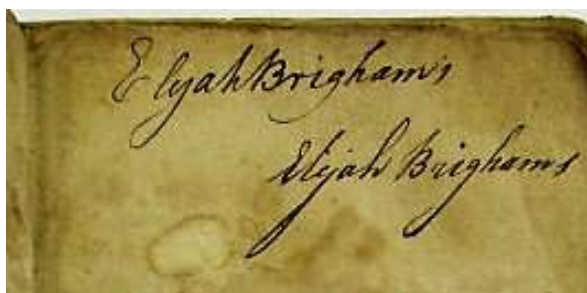 Elijah Brigham's
Elijah Brighams